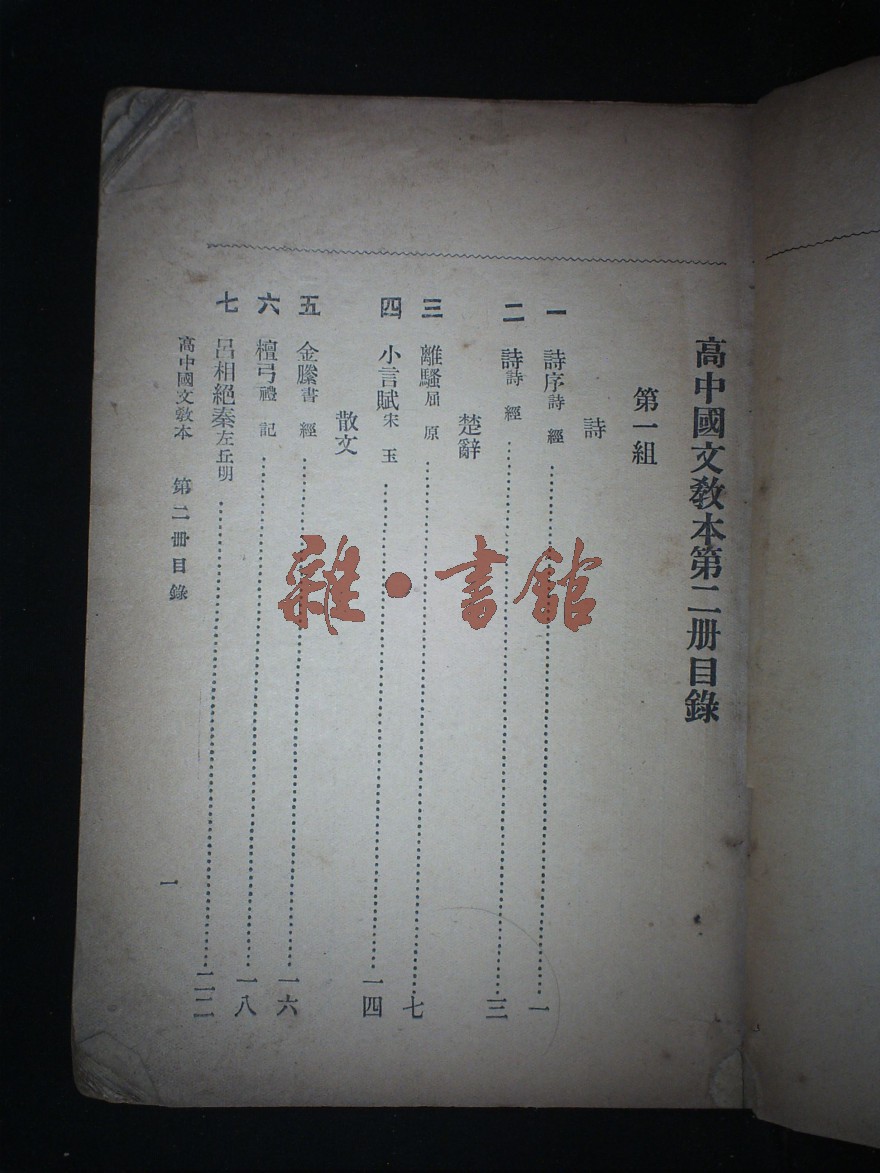 高中國文教本第二册目錄
第一組
詩
一 詩序詩經 一
二 詩詩經 三
楚辭
三 離騷屈原 七
四 小言賦宋玉 一四
散文
五 金縢書經 一六
六 檀弓禮記 一八
七 呂相絕秦左丘明 二二
高中國文教本 第二册目錄 一
雜·書館